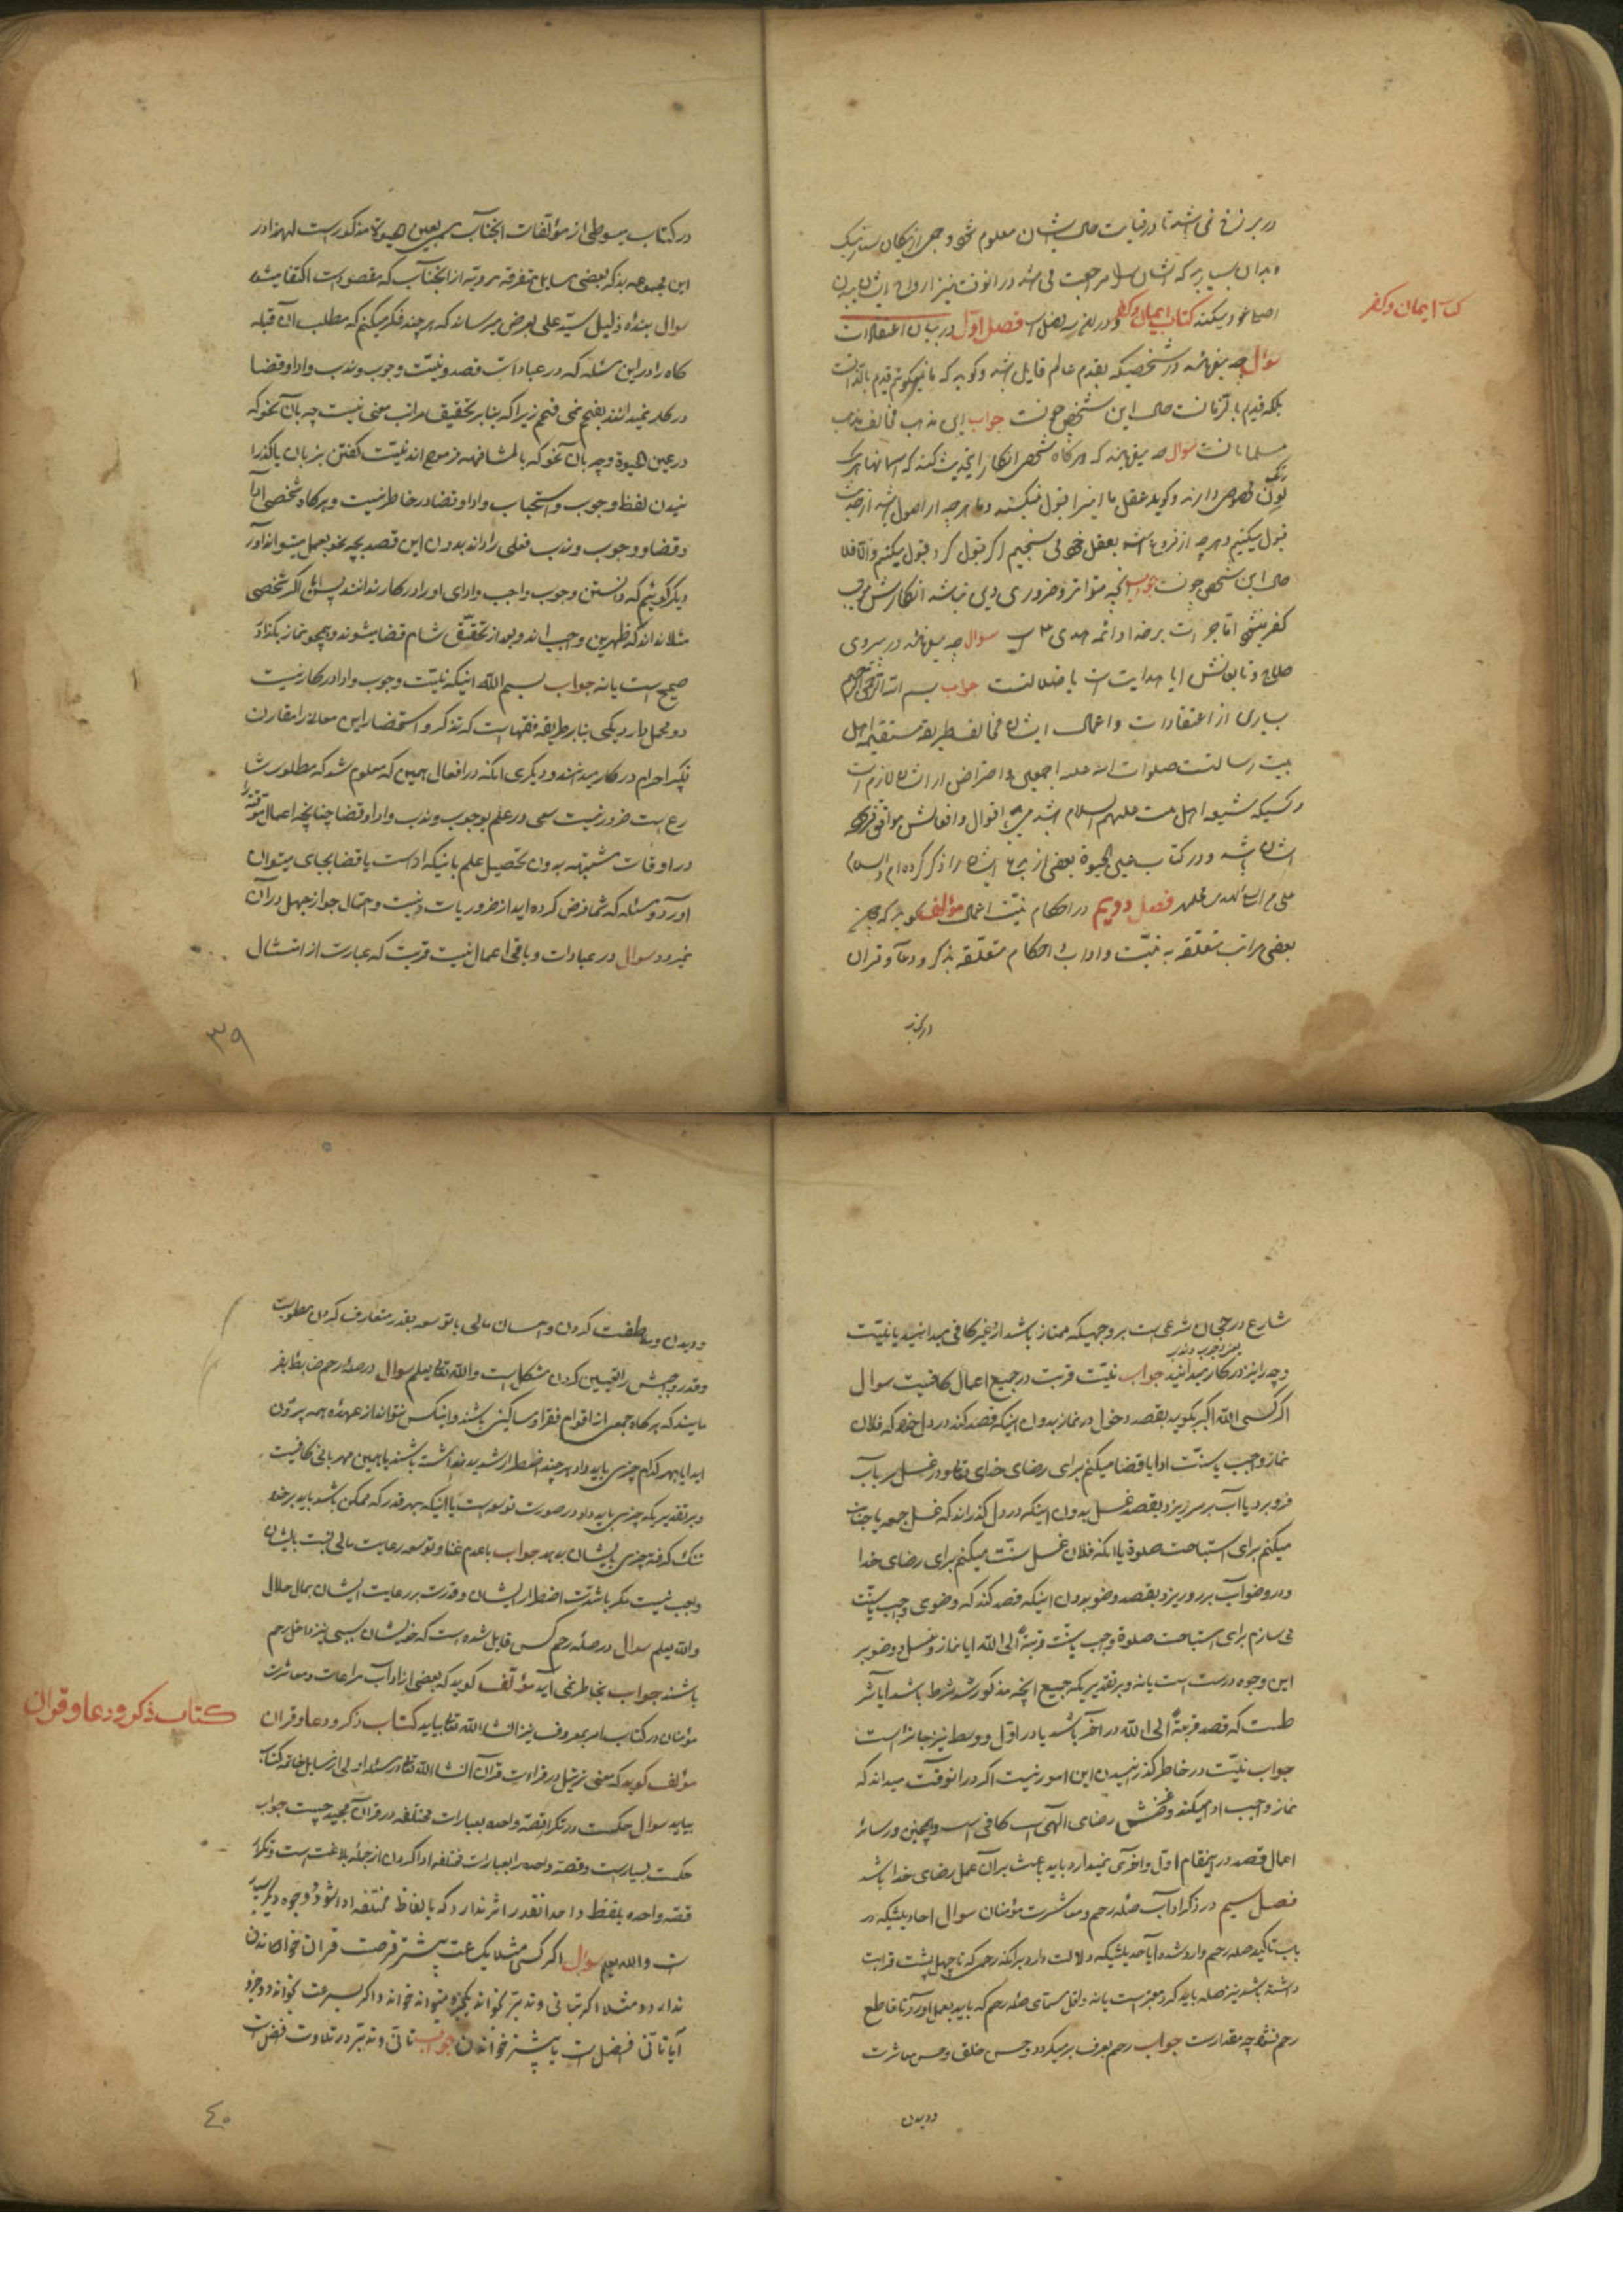 در برزخ نمی باشد تا در قیامت حال ایشان معلوم شود و جمعی از نیکان بسیار نیک
و بدان بسیار بد که ایشان را مراجعت می باشد در آنوقت نیز ارواح ایشان ببدن
اصلی عود میکند کتاب ایمان و کفر و در آن سه فصل است فصل اول در بیان اعتقادات
کتاب ایمان و کفر
سؤال چه میفرمایند در شخصیکه بقدم عالم قایل باشد و گوید که ما نمیگوئیم قدیم بالذات
بلکه قدیم بالزمانست حال این شخص چونست جواب این مذهب مخالف مذهب
مسلمانانست سؤال چه میفرمایند که هرگاه شخصی انکار این حدیث کند که آسمانها هر یک
لون مخصوص دارند و گوید عقل ما اینرا قبول نمیکند و ما هر چه از اصول باشد از حدیث
قبول میکنیم و هر چه از فروع باشد بعقل خود می سنجیم اگر قبول کرد قبول میکنیم و الا فلا
حال این شخص چونست جواب آنچه متواتر و ضروری دین نباشد انکارش موجب
کفر نمیشود اما جرأت بر خدا و ائمه هدی است سؤال چه میفرمایند در پیروی
حلاج و تابعانش آیا هدایت است یا ضلالت جواب بسم الله الرحمن الرحیم
بسیاری از اعتقادات و اعمال ایشان مخالف طریقه مستقیمه اهل
بیت رسالتست صلوات الله علیهم اجمعین و اعتراض از ایشان لازم است
و کسیکه شیعه اهل بیت علیهم السلام باشد می باید اقوال و افعالش موافق فرموده
ایشان باشد و در کتاب عین الحیوة بعضی از بدع ایشان را ذکر کرده ام والسلام
علی من اتبع الهدی فصل دویم در احکام نیت اعمال مؤلف گوید که چون
بعضی مراتب متعلقه به نیت و آداب و احکام متعلقه بذکر و دعا و قرآن
در کتاب
در کتاب مبسوطی از مؤلفات آنجناب مسمی بعین الحیوة مذکور است لهذا در
این مجموعه بذکر بعضی مسایل متفرقه مرویه از آنجناب که مقصود است اکتفا میشود
سؤال بنده ذلیل سید علی بعرض میرساند که هر چند فکر میکنم که مطلب آن قبله
گاه را در این مسئله که در عبادات قصد و نیت وجوب و ندب و ادا و قضا
در کار نمیدانند بفهم نمی فهمم زیرا که بنابر تحقیق مراتب معنی نیت چه بآن نحو که
در عین الحیوة و چه بآن نحو که بالمشافهه فرموده اند نیت گفتن بزبان یا گذرا
نیدن لفظ وجوب و استحباب و ادا و قضا در خاطر نیست و هرگاه شخصی ادا
و قضا و وجوب و ندب فعلی را داند بدون این قصد بچه نحو بعمل میتواند آورد
دیگر گوئیم که دانستن وجوب واجب و ادای او را در کار ندانند پس اگر شخصی
مثلا نداند که ظهرین واجب اند و بعد از تحقق شام قضا میشوند و همچو نماز بگذارد
صحیح است یا نه جواب بسم الله اینکه نیت وجوب و ادا در کار نیست
دو محمل دارد یکی بنابر طریقه فقها است که تذکر و استحضار این معانی را مقارن
تکبیر احرام در کار میدانند و دیگری آنکه در افعال همین که معلوم شد که مطلوب شا
رع است ضرور نیست سعی در علم بوجوب و ندب و ادا و قضا چنانچه اعمال موقته را
در اوقات مشتبهه بدون تحصیل علم باینکه اداست یا قضا بجای میتوان
آورد و مسئله که شما فرض کرده اید از ضروریات دینست و احتمال جواز جهل در آن
نمیرود سؤال در عبادات و باقی اعمال نیت قربت که عبارت از امتثال
۳۹
شارع در رجحان شرعی است بر وجهیکه ممتاز باشد از غیر کافی میدانید یا نیت
یعنی وجوب و ندب
وجه را نیز در کار میدانید جواب نیت قربت در جمیع اعمال کافیست سؤال
اگر کسی الله اکبر بگوید بقصد دخول در نماز بدون اینکه قصد کند در دل خود که فلان
نماز واجب یا سنت ادا یا قضا میکنم برای رضای خدای تعالی و در غسل سر بآب
فرو برد یا آب بر سر ریزد بقصد غسل بدون اینکه در دل گذراند که غسل جمعه یا جنابت
میکنم برای استباحت صلوة یا آنکه فلان غسل سنت میکنم برای رضای خدا
و در وضو آب بر رو ریزد بقصد وضو بدون اینکه قصد کند که وضوی واجب یا سنت
می سازم برای استباحت صلوة واجب یا سنت قربة الی الله آیا نماز و غسل و وضو بر
این وجوه درست است یا نه و بر تقدیریکه جمیع آنچه مذکور شد شرط باشد آیا شر
طست که قصد قربة الی الله در آخر باشد یا در اول و وسط نیز جائز است
جواب نیت در خاطر گذرانیدن این امور نیست اگر در آنوقت میداند که
نماز واجب ادا میکند و غرضش رضای الهی است کافی است و همچنین در سائر
اعمال قصد در اینمقام اول و آخری نمیدارد باید باعث بر آن عمل رضای خدا باشد
فصل سیم در ذکر آداب صله رحم و معاشرت مؤمنان سؤال احادیثیکه در
باب تاکید صله رحم وارد شده آیا حدیثیکه دلالت دارد بر آنکه رحمی که تا چهل پشت قرابت
داشته باشد نیز صله باید کرد معتبر است یا نه و اقل مسمای صله رحم که باید بعمل آورد تا قاطع
رحم نشود چه مقدارست جواب رحم بعرف بر میگردد و حسن خلق و حسن معاشرت
و دیدن
و دیدن و ملاطفت کردن و احسان مالی با توسعه بقدر متعارف کردن مطلوبست
و قدر واجبش را تعیین کردن مشکل است والله تعالی یعلم سؤال در صله رحم ضابطه بفر
مایند که هرگاه جمعی از اقوام فقرا و مساکین باشند و اینکس نتواند از عهده همه بیرون
آید آیا بهر کدام چیزی باید داد هر چند اضطرار شدید نداشته باشند یا همین مهربانی کافیست
و بر تقدیریکه چیزی باید داد در صورت توسعه است یا اینکه بهر قدر که ممکن باشد باید بر خود
تنگ گرفته چیزی بایشان بدهد جواب با عدم غنا و توسعه رعایت مالی نسبت بایشان
واجب نیست مگر با شدت اضطرار ایشان و قدرت بر رعایت ایشان بمال حلال
والله یعلم سؤال در صله رحم کسی قایل شده است که خویشان سببی نیز داخل رحم
باشند جواب بخاطر نمی آید مؤلف گوید که بعضی از آداب مراعات و معاشرت
مؤمنان در کتاب امر بمعروف نیز انشاء الله تعالی بیاید کتاب ذکر و دعا و قرآن
کتاب ذکر و دعا و قرآن
مؤلف گوید که معنی ترتیل در قراءت قرآن انشاء الله تعالی در مسئله اولی از مسایل خاتمه کتاب
بیاید سؤال حکمت در تکرار قصه واحده بعبارات مختلفه در قرآن مجید چیست جواب
حکمت بسیار است و قصه واحده را بعبارات مختلفه ادا کردن از جمله بلاغت است و تکرار
قصه واحده بلفظ واحد آنقدر اثر ندارد که بالفاظ مختلفه ادا شود و وجوه دیگر بسیار
است والله یعلم سؤال اگر کسی مثلا یک ساعت بیشتر فرصت قرآن خواندن
ندارد و مثلا اگر بتانی و تدبر بخواند یکجزو میتواند خواند و اگر بسرعت بخواند دو جزو
آیا تانی افضل است یا بیشتر خواندن جواب تانی و تدبر در تلاوت افضل است
۴۰